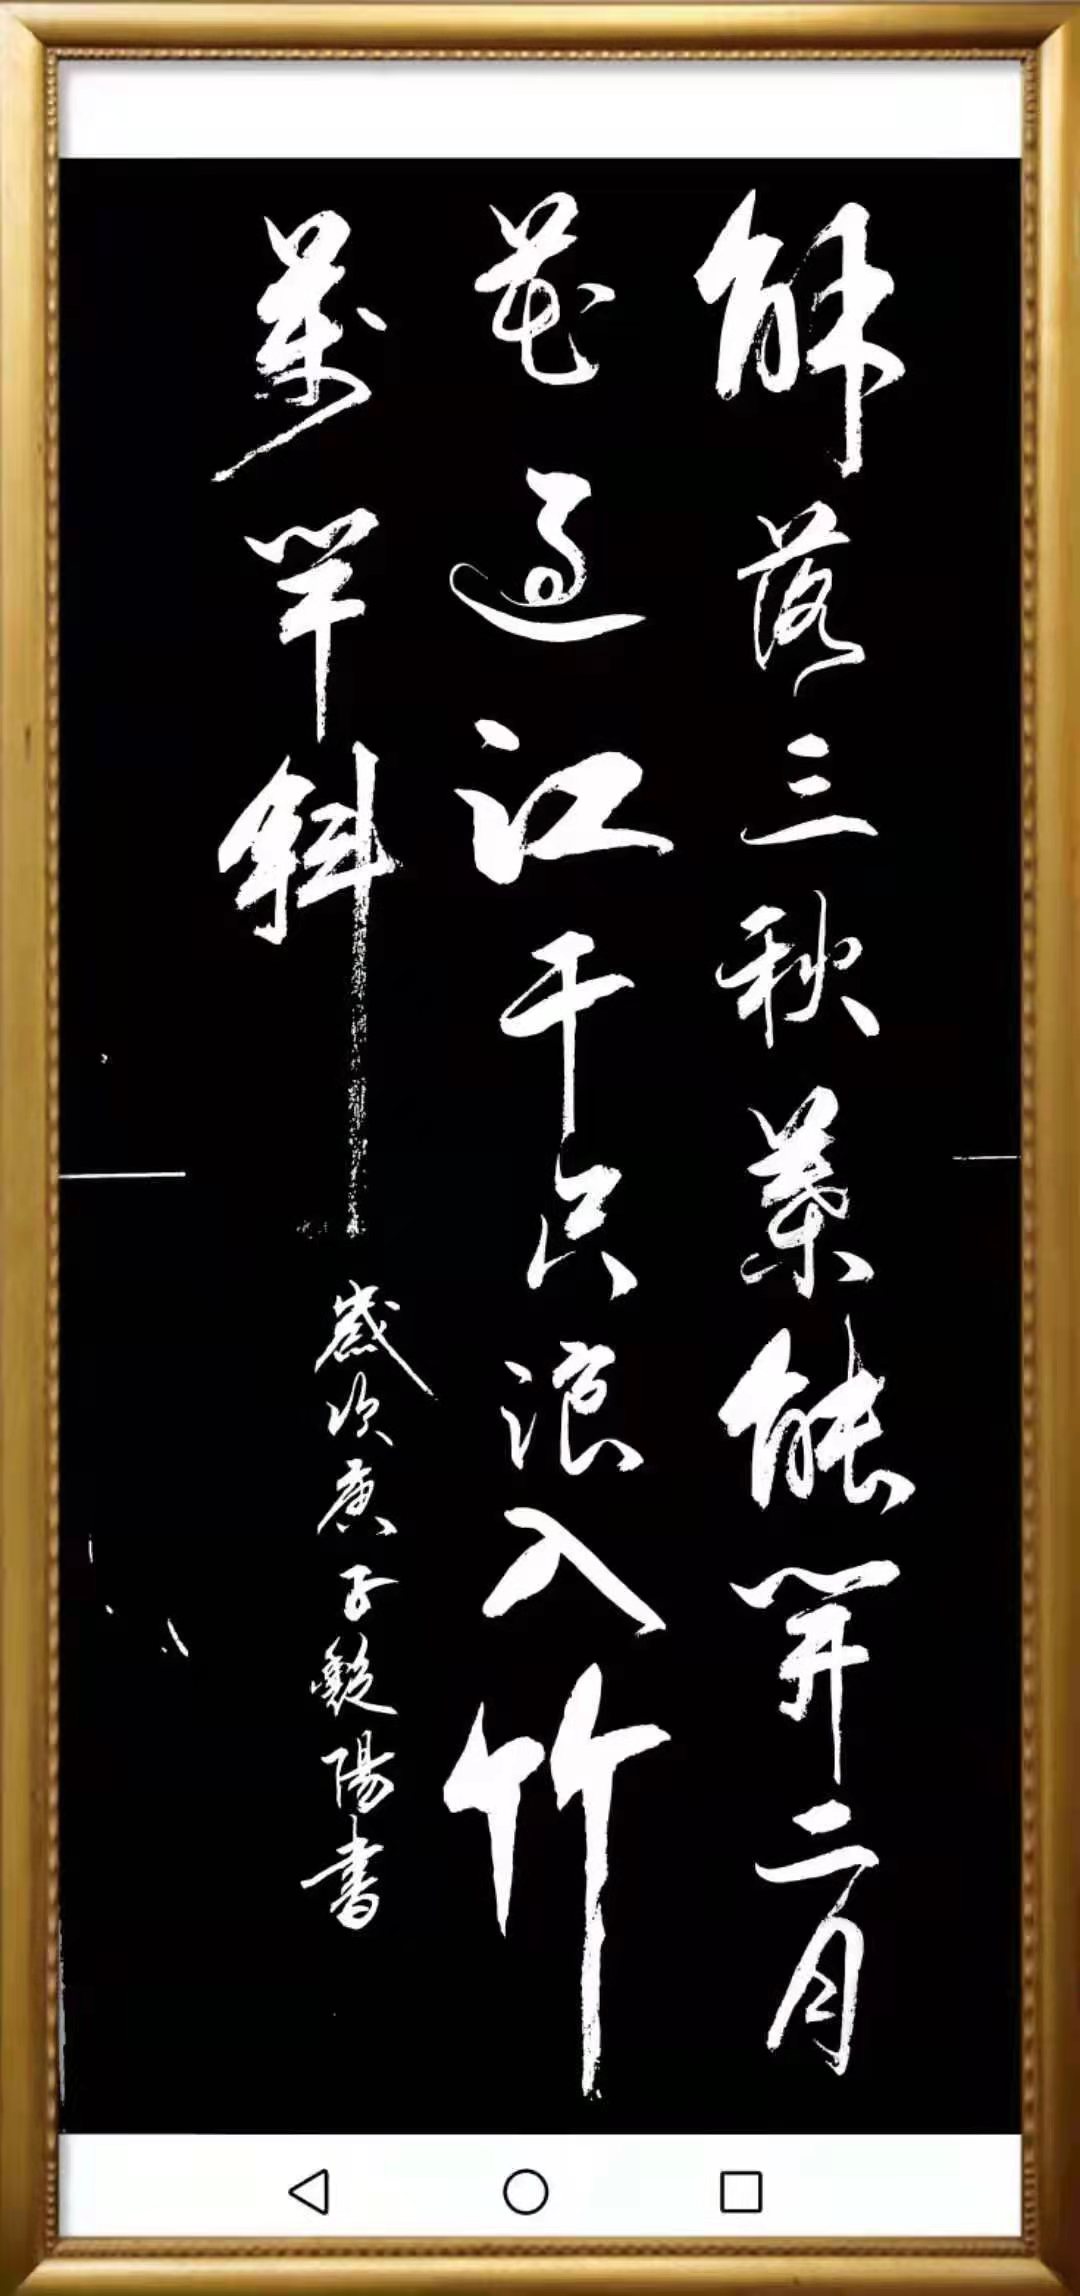 解落三秋葉能開二月
花過江千尺浪入竹
萬竿斜
歲次庚子陽書